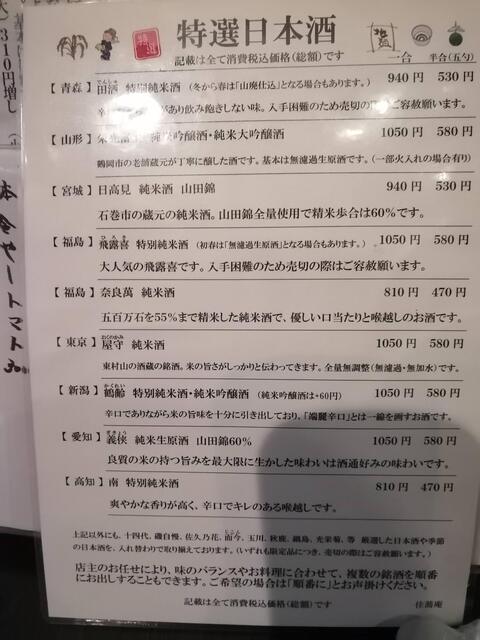 310円増し
本金ヤートマト
特選
特選日本酒
記載は全て消費税込価格(総額)です
一合 半合(五勺)
【青森】田酒 特別純米酒 (冬から春は「山廃仕込」となる場合もあります。) 940円 530円
でんしゅ
があり飲み飽きしない味。入手困難のため売切の際はご容赦願います。
【山形】 純米吟醸酒・純米大吟醸酒 1050円 580円
鶴岡市の老舗蔵元が丁寧に醸した酒です。基本は無濾過生原酒です。(一部火入れの場合有り)
【宮城】日高見 純米酒 山田錦 940円 530円
石巻市の蔵元の純米酒。山田錦全量使用で精米歩合は60%です。
【福島】飛露喜 特別純米酒 (初春は「無濾過生原酒」となる場合もあります。) 1050円 580円
ひろき
大人気の飛露喜です。入手困難のため売切の際はご容赦願います。
【福島】奈良萬 純米酒 810円 470円
五百万石を55%まで精米した純米酒で、優しい口当たりと喉越しのお酒です。
【東京】屋守 純米酒 1050円 580円
おくのかみ
東村山の酒蔵の銘酒。米の旨さがしっかりと伝わってきます。全量無調整(無濾過・無加水)です。
【新潟】鶴齢 特別純米酒・純米吟醸酒 (純米吟醸酒は+60円) 1050円 580円
かくれい
辛口でありながら米の旨味を十分に引き出しており、「端麗辛口」とは一線を画すお酒です。
【愛知】義侠 純米生原酒 山田錦60% 1050円 580円
ぎきょう
良質の米の持つ旨みを最大限に生かした味わいは酒通好みの味わいです。
【高知】南 特別純米酒 810円 470円
爽やかな香りが高く、辛口でキレのある喉越しです。
上記以外にも、十四代、磯自慢、佐久乃花、而今、玉川、秋鹿、鍋島、光栄菊、等 厳選した日本酒や季節
の日本酒を、入れ替わりで取り揃えております。(いずれも限定品につき、売切の際はご容赦願います。)
店主のお任せにより、味のバランスやお料理に合わせて、複数の銘酒を順番
にお出しすることもできます。ご希望の場合は「順番に」とお声掛けください。
記載は全て消費税込価格(総額)です
佳肴庵